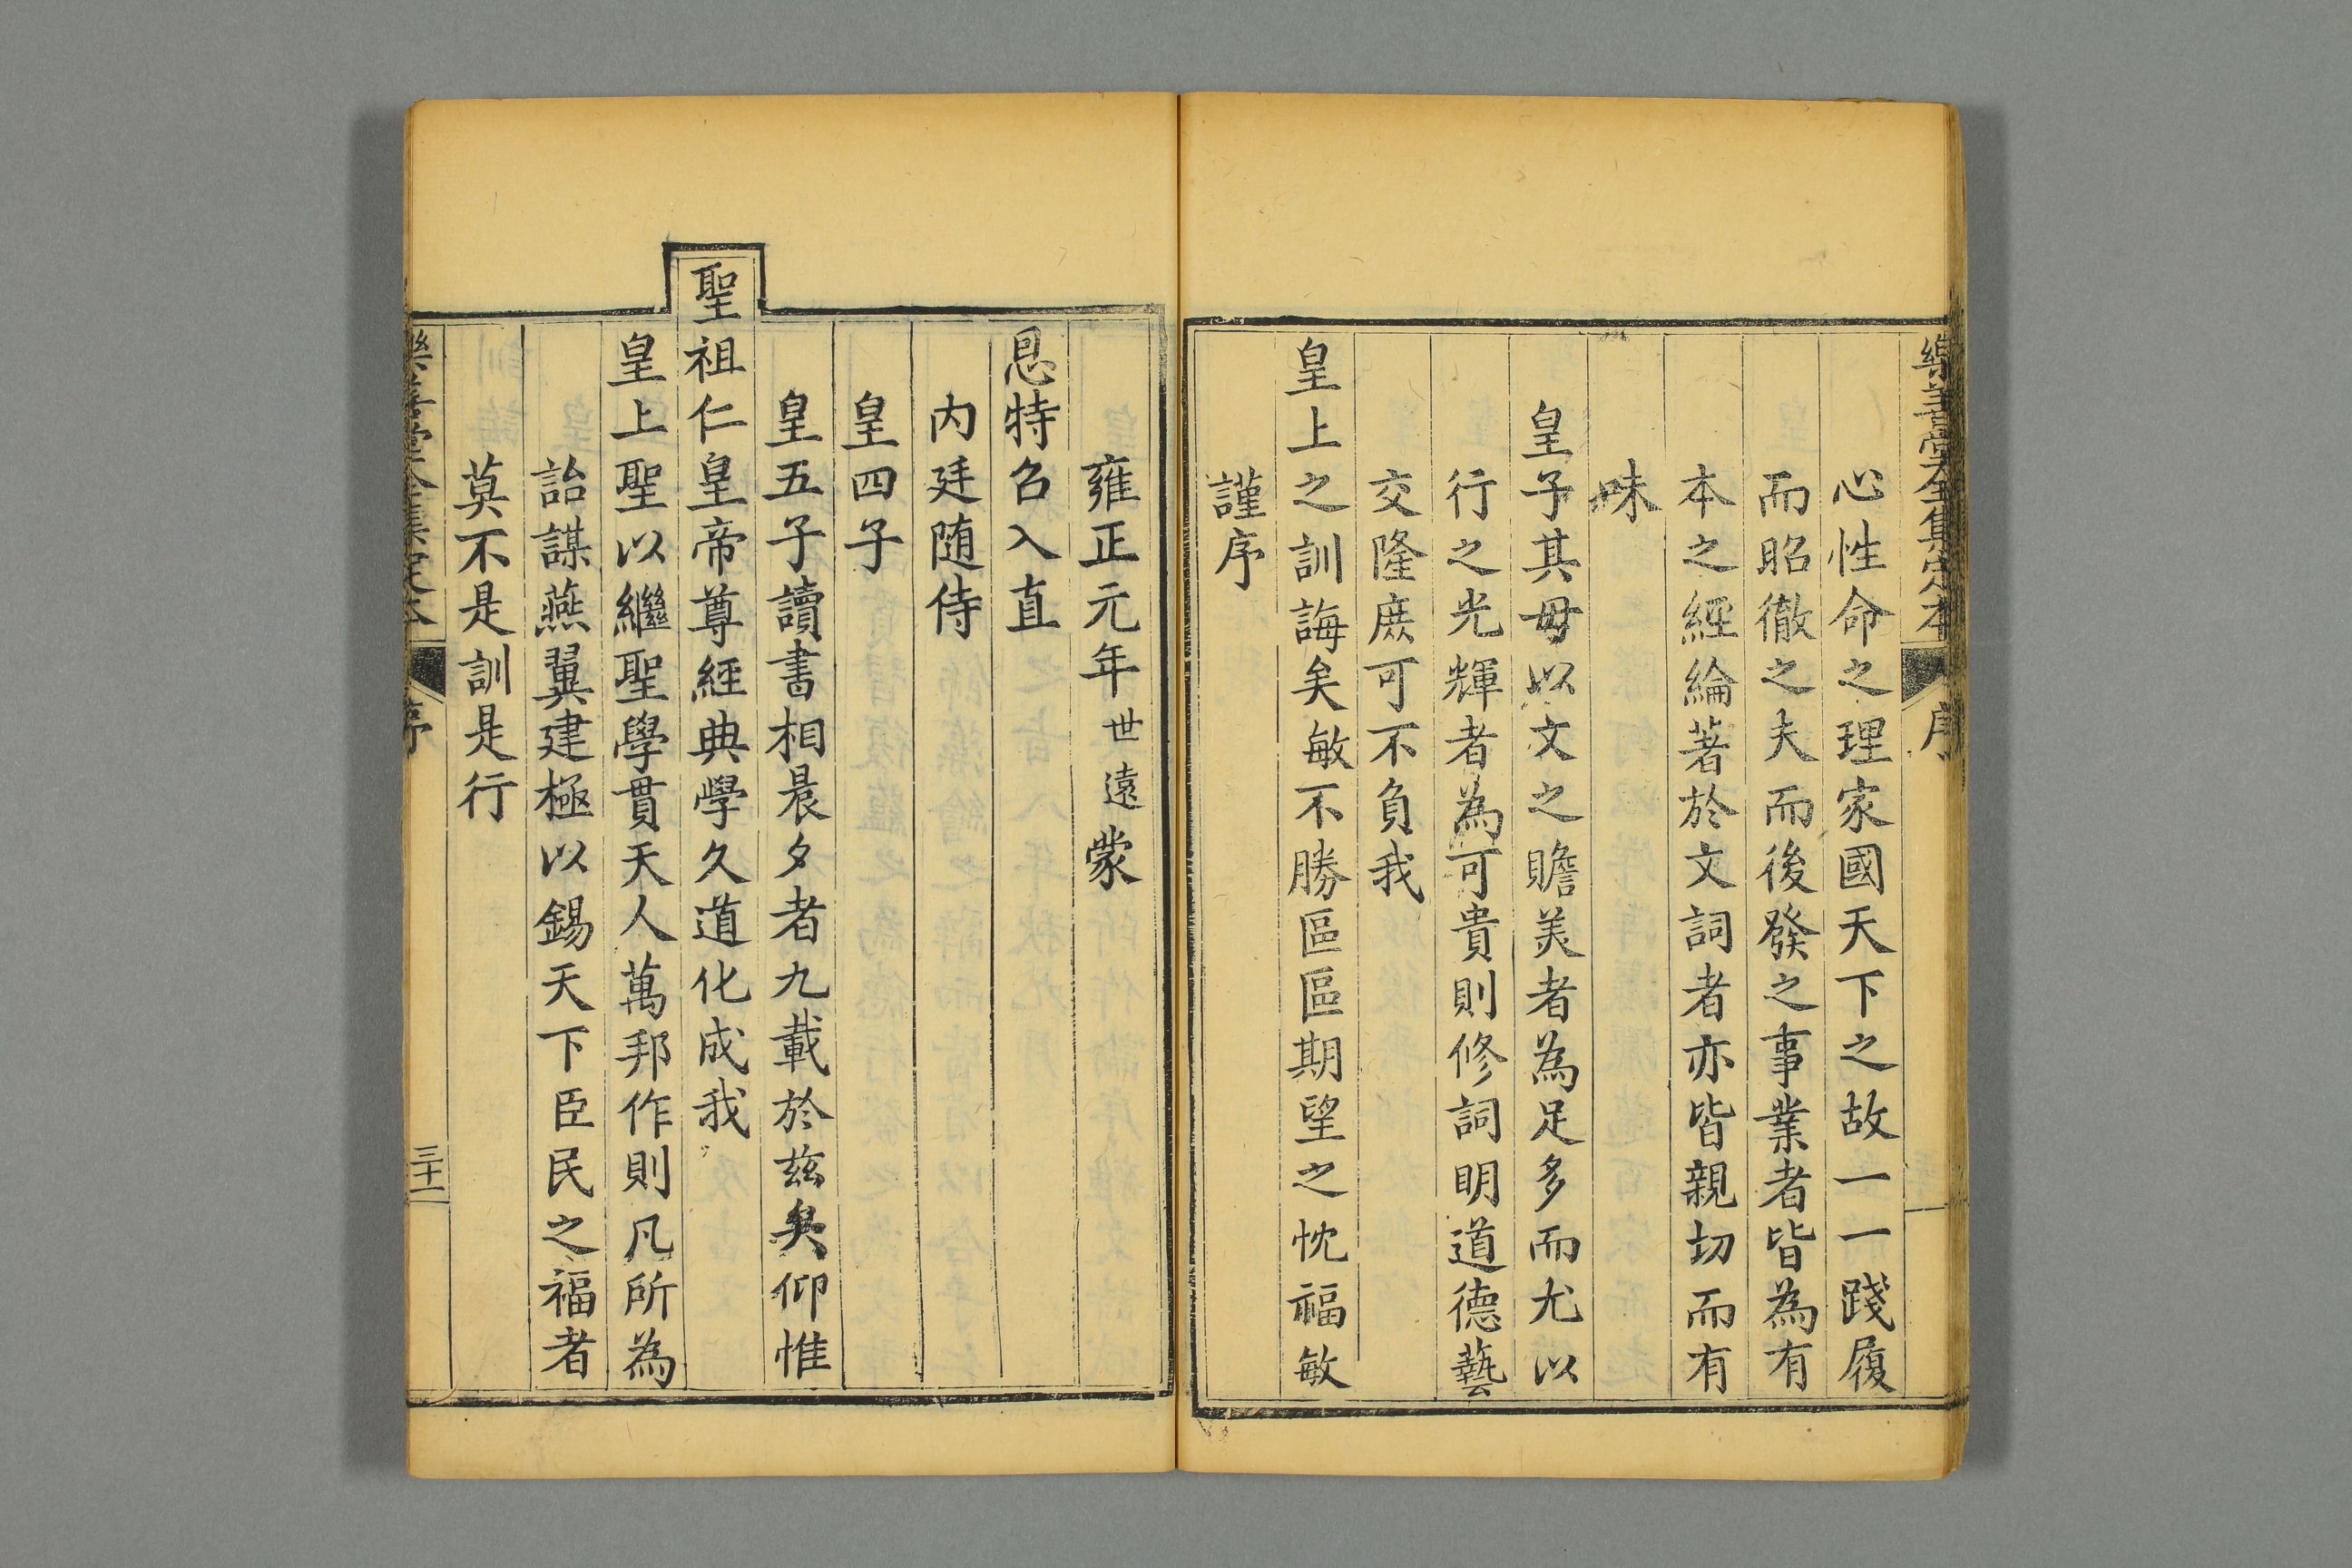 樂善堂全集定本 序
心性命之理家國天下之故一一踐履
而昭徹之夫而後發之事業者皆為有
本之經綸著於文詞者亦皆親切而有
味
皇子其毋以文之贍美者為足多而尤以
行之光輝者為可貴則修詞明道德藝
交隆庶可不負我
皇上之訓誨矣敏不勝區區期望之忱福敏
謹序
雍正元年世遠蒙
恩特召入直
內廷随侍
皇四子
皇五子讀書相晨夕者九載於茲矣仰惟
聖祖仁皇帝尊經典學久道化成我
皇上聖以繼聖學貫天人萬邦作則凡所為
詒謀燕翼建極以錫天下臣民之福者
莫不是訓是行
樂善堂全集定本 序 三十一